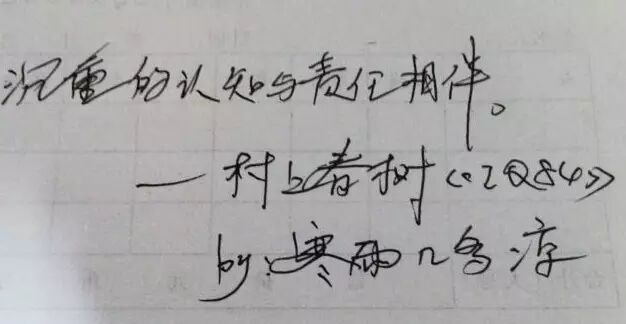 沉重的认知与责任相伴。
—村上春树《1Q84》
by:寒雨几多凉